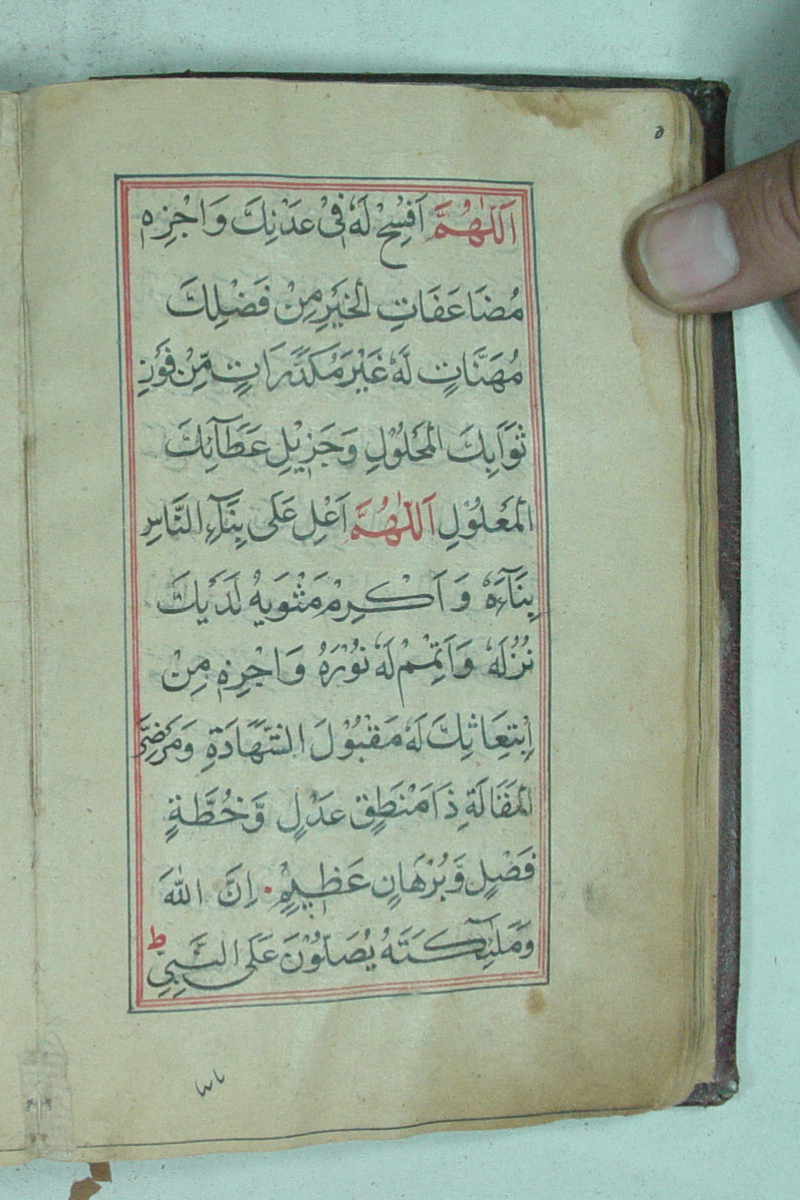 اَللّٰهُمَّ اَفْسِحْ لَهٗ فِیْ عَدْنِكَ وَاجْزِهٖ
مُضَاعَفَاتِ الْخَيْرِ مِنْ فَضْلِكَ
مُهَنَّاتٍ لَهٗ غَيْرَ مُكَدَّرَاتٍ مِّنْ فَوْزِ
ثَوَابِكَ الْمَحْلُوْلِ وَجَزِيْلِ عَطَآئِكَ
الْمَعْلُوْلِ اَللّٰهُمَّ اَعْلِ عَلٰی بِنَآءِ النَّاسِ
بِنَآءَهٗ وَاَكْرِمْ مَثْوٰيهُ لَدَيْكَ
نُزُلَهٗ وَاَتْمِمْ لَهٗ نُوْرَهٗ وَاجْزِهٖ مِنْ
اِبْتِعَاثِكَ لَهٗ مَقْبُوْلَ الشَّهَادَةِ وَمَرْضِیَّ
الْمَقَالَةِ ذَا مَنْطَقٍ عَدْلٍ وَّخُطَّةٍ
فَصْلٍ وَّبُرْهَانٍ عَظِيْمٍ اِنَّ اللّٰهَ
وَمَلٰٓئِكَتَهٗ يُصَلُّوْنَ عَلَی النَّبِیِّ ط